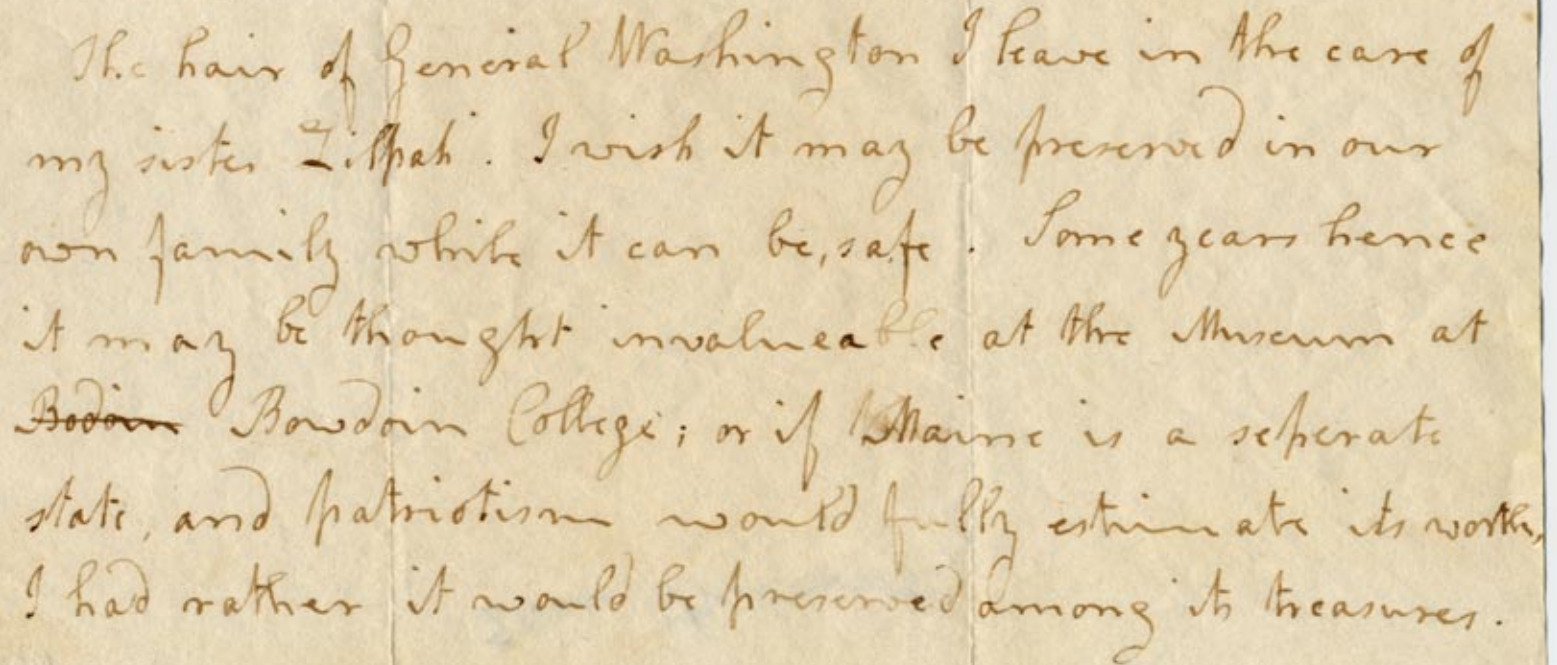 The hair of General Washington I leave in the care of
my sister Zilpah. I wish it may be preserved in our
own family while it can be, safe. Some years hence
it may be thought invalueable at the Museum at
Bodoin Bowdoin College; or if Maine is a seperate
state, and patriotism would fully estimate its worth,
I had rather it would be preserved among its treasures.